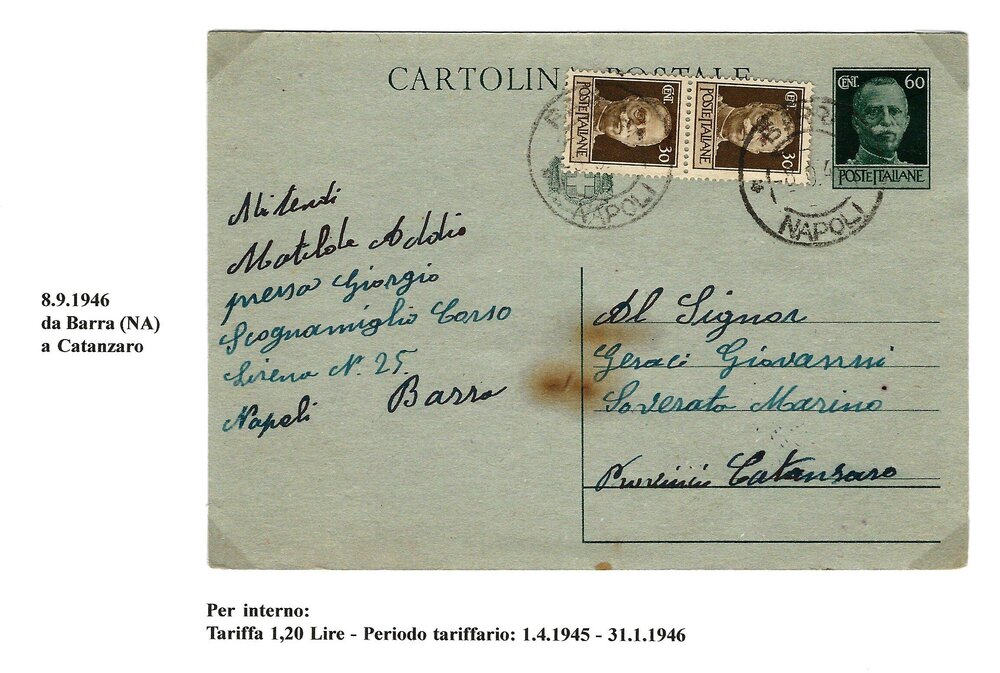 CARTOLINA POSTALE
CENT. 30
POSTE ITALIANE
CENT. 30
POSTE ITALIANE
CENT. 60
POSTE ITALIANE
NAPOLI
BARRA
NAPOLI
Mitendi
Matilde Addio
presso Giorgio
Scognamiglio Corso
Sirena N. 25.
Napoli Barra
Al Signor
Geraci Giovanni
Soverato Marina
Provincia Catanzaro
8.9.1946
da Barra (NA)
a Catanzaro
Per interno:
Tariffa 1,20 Lire - Periodo tariffario: 1.4.1945 - 31.1.1946